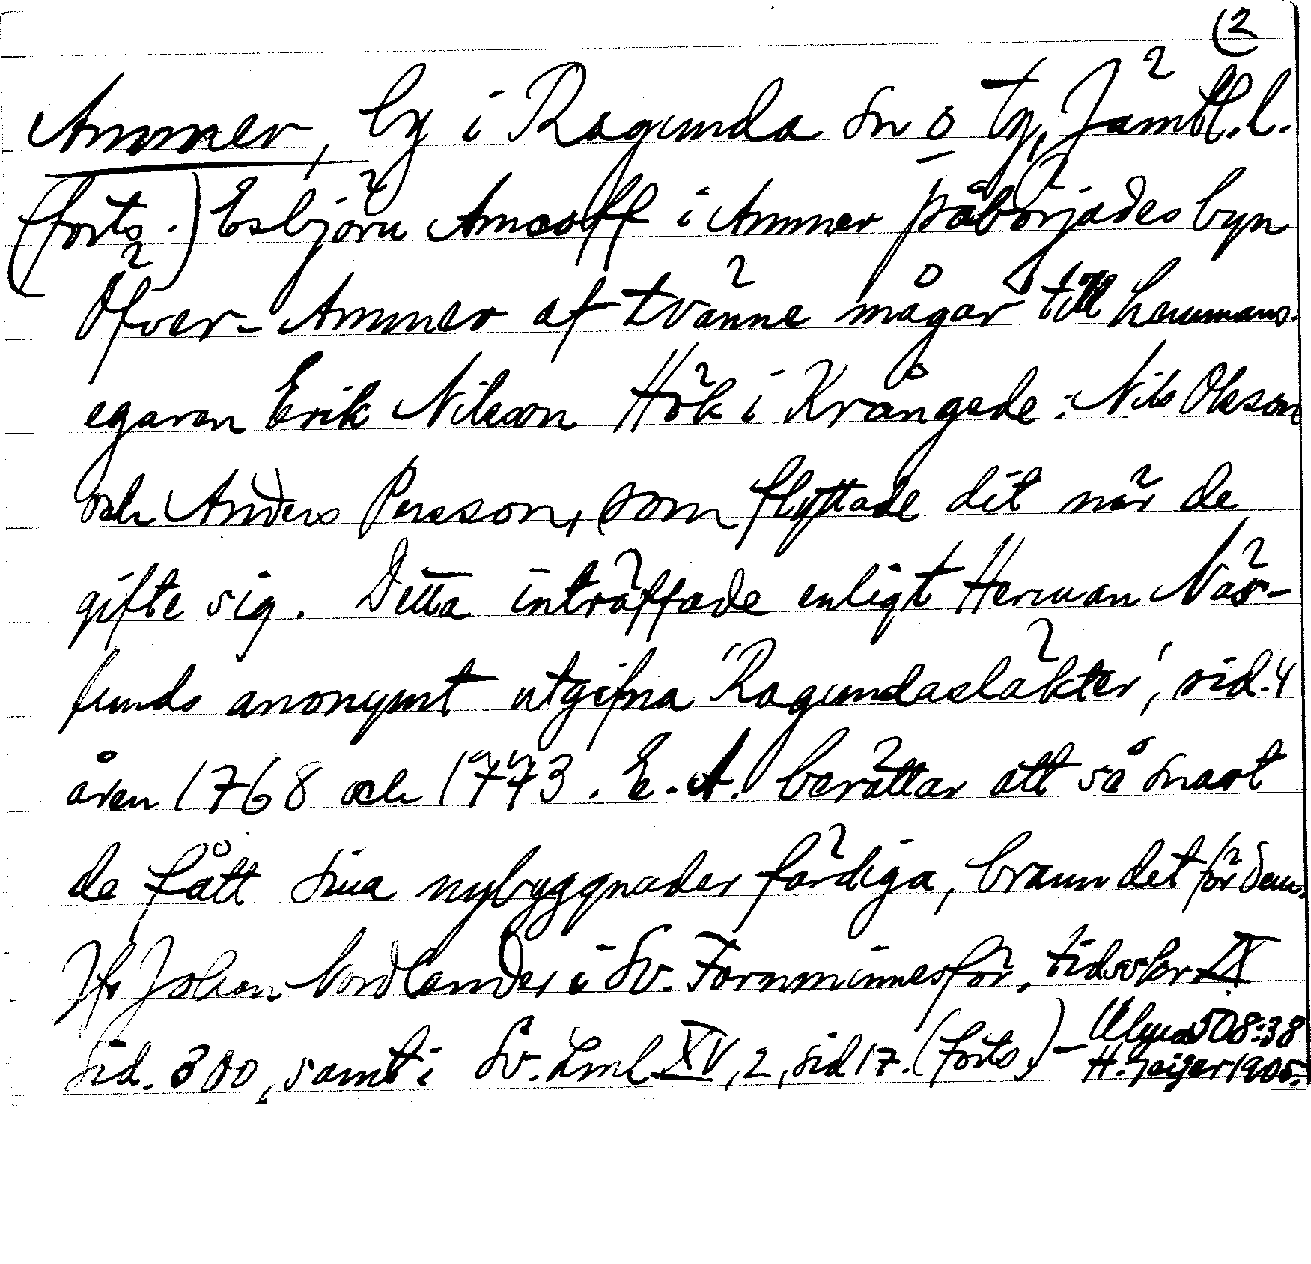 (2
Ammer, by i Ragunda sn o tg, Jämtl. l.
(forts.) Esbjörn Amcoff i Ammer påbörjades byn
Öfver-Ammer af tvänne mågar till hemmans-
egaren Erik Nilsson Hök i Krångede: Nils Olsson
och Anders Persson, som flyttade dit när de
gifte sig. Detta inträffade enligt Herman Näs-
lunds anonymt utgifna 'Ragundasläkter', sid. 4
åren 1768 och 1773. E. A. berättar att så snart
de fått sina nybyggnader färdiga, brann det för dem.
Jfr Johan Nordlander i Sv. Fornminnesför. tidskr. IX
sid. 300, samt i Sv. Lml XV, 2, sid 17. (forts.) – Ulma 508:38
H. Geijer 1905.